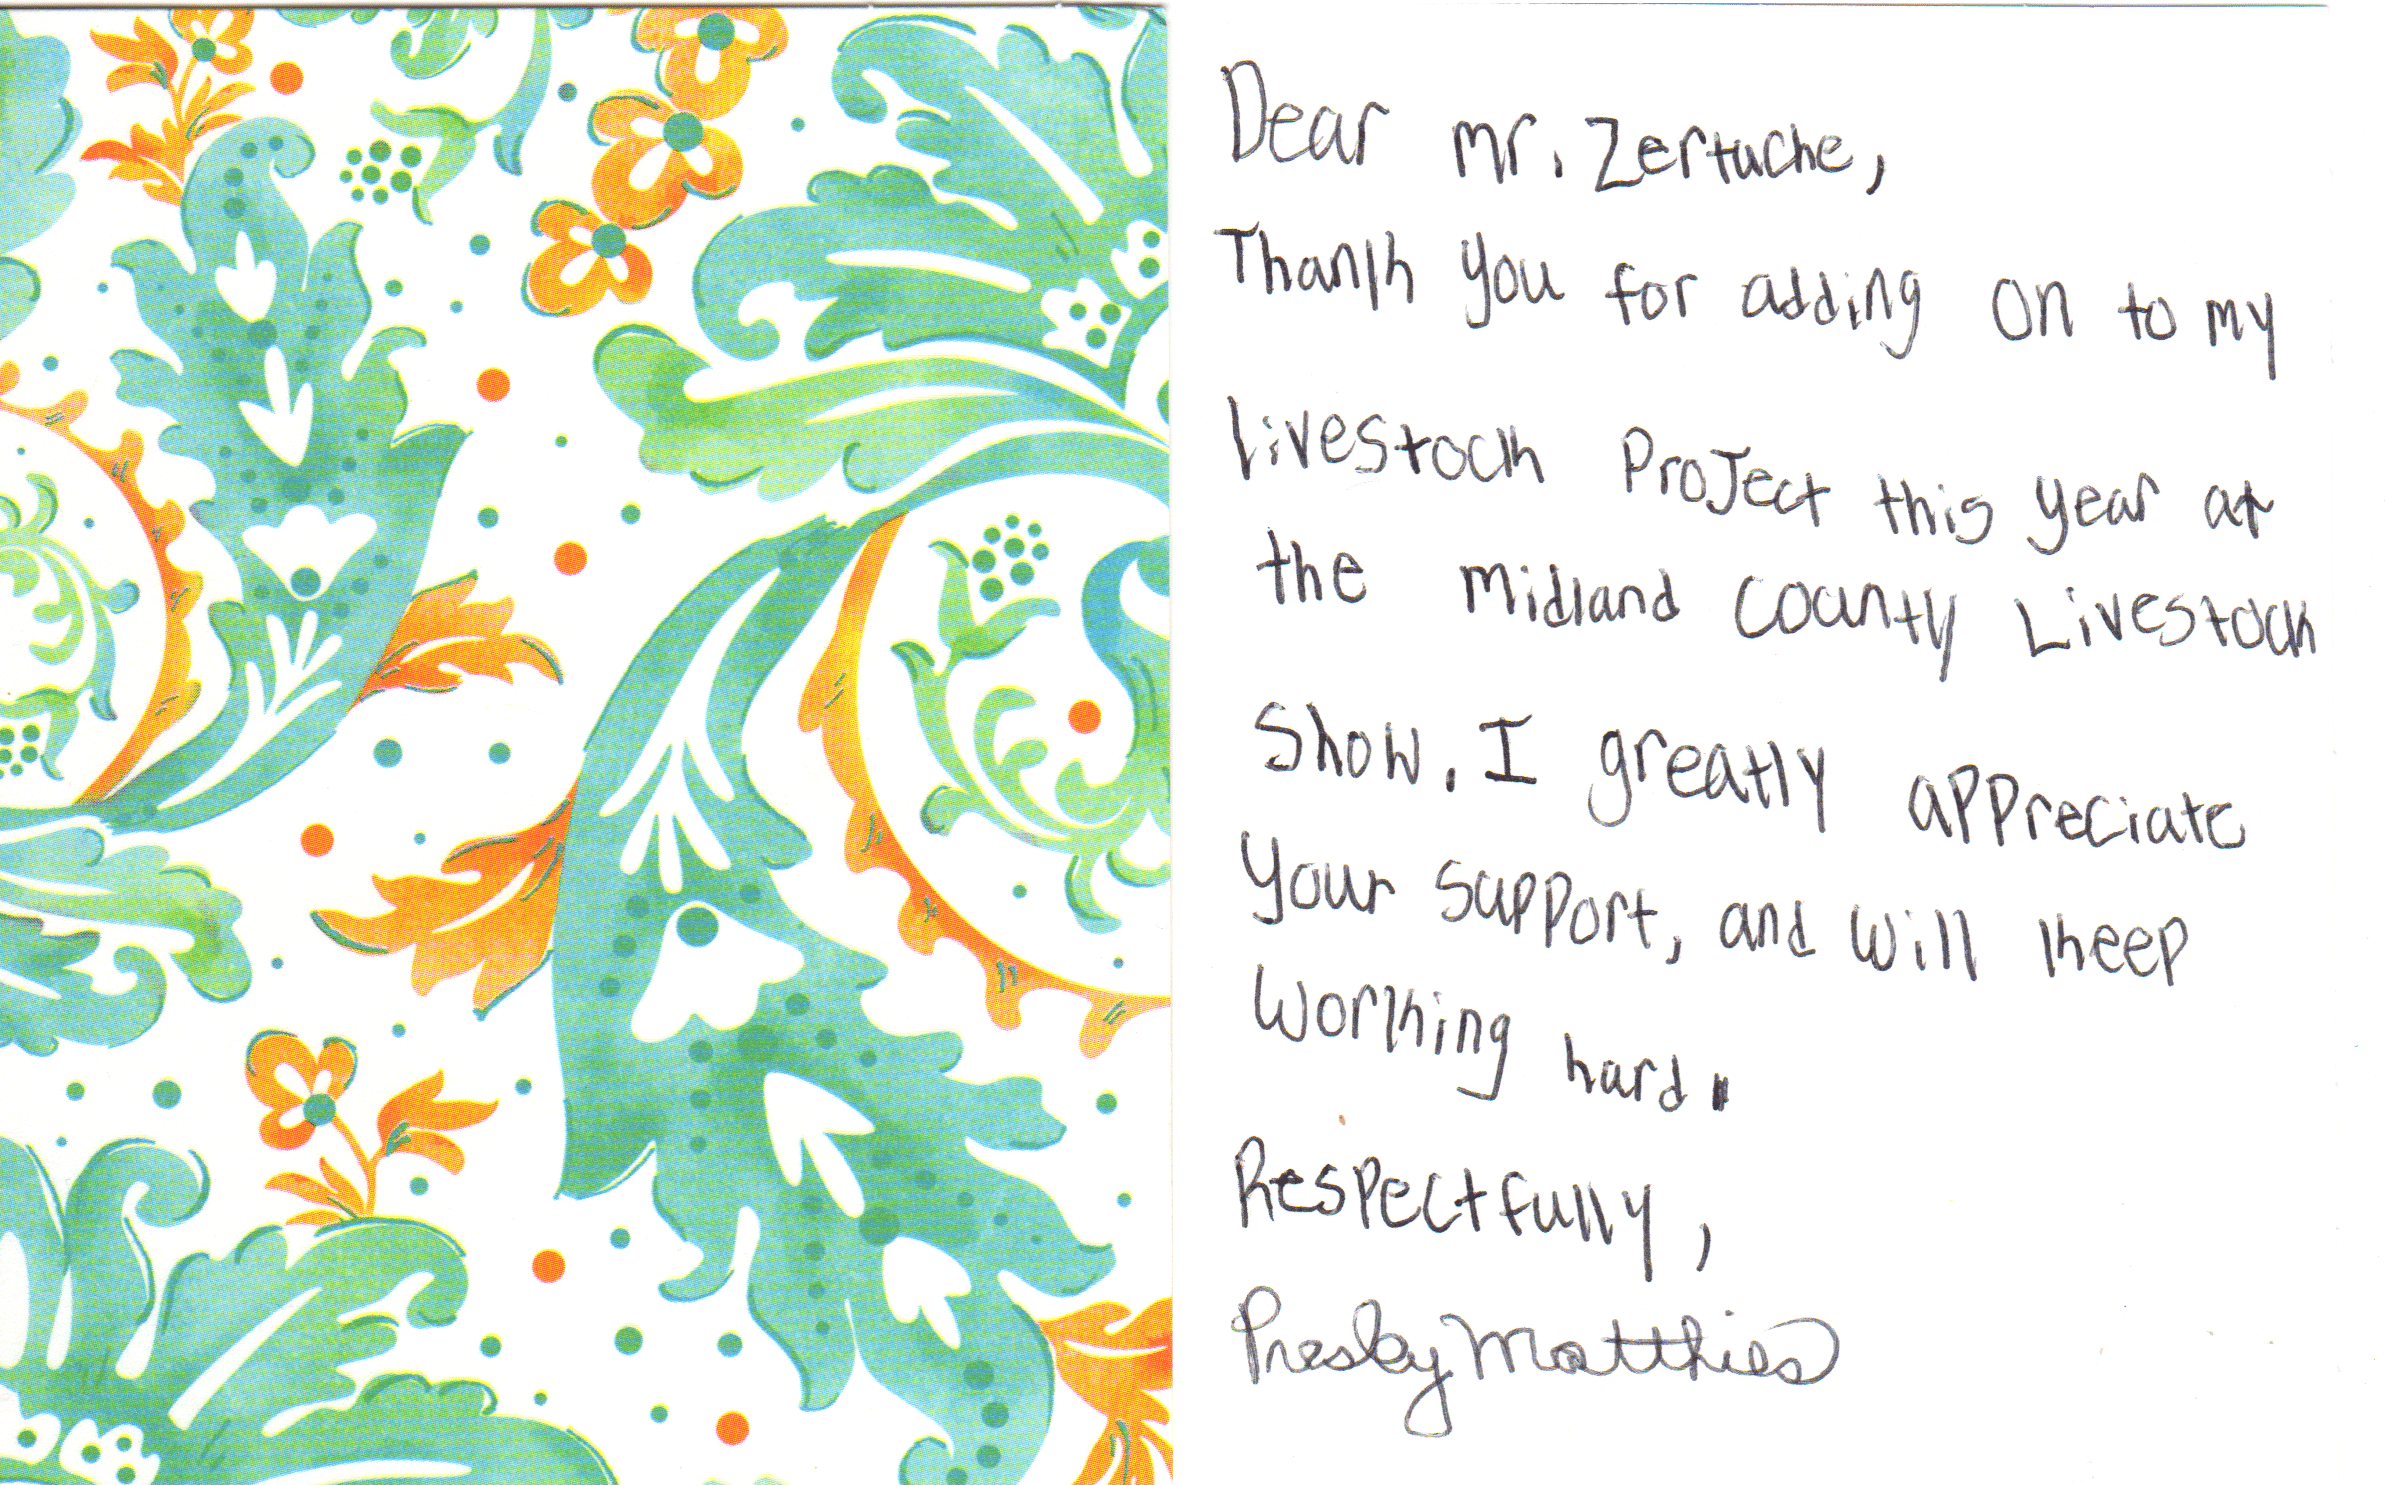 Dear Mr. Zertuche,
Thank you for adding on to my
livestock Project this year at
the Midland County Livestock
Show. I greatly appreciate
your support, and will keep
working hard.
Respectfully,
Presley Matthies